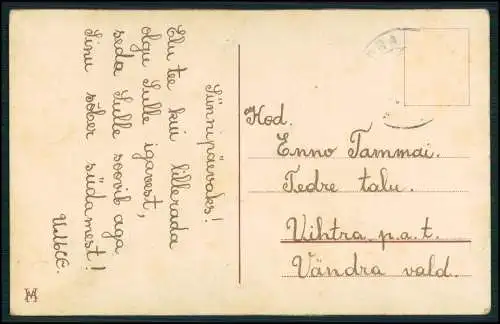 Sünnipäevaks!
Elu tee kui lillerada
olgu Sulle igavest,
seda Sulle soovib aga
Sinu sõber südamest!
Hod.
Enno Tammai.
Tedre talu.
Vihtra p.a.t.
Vändra vald.